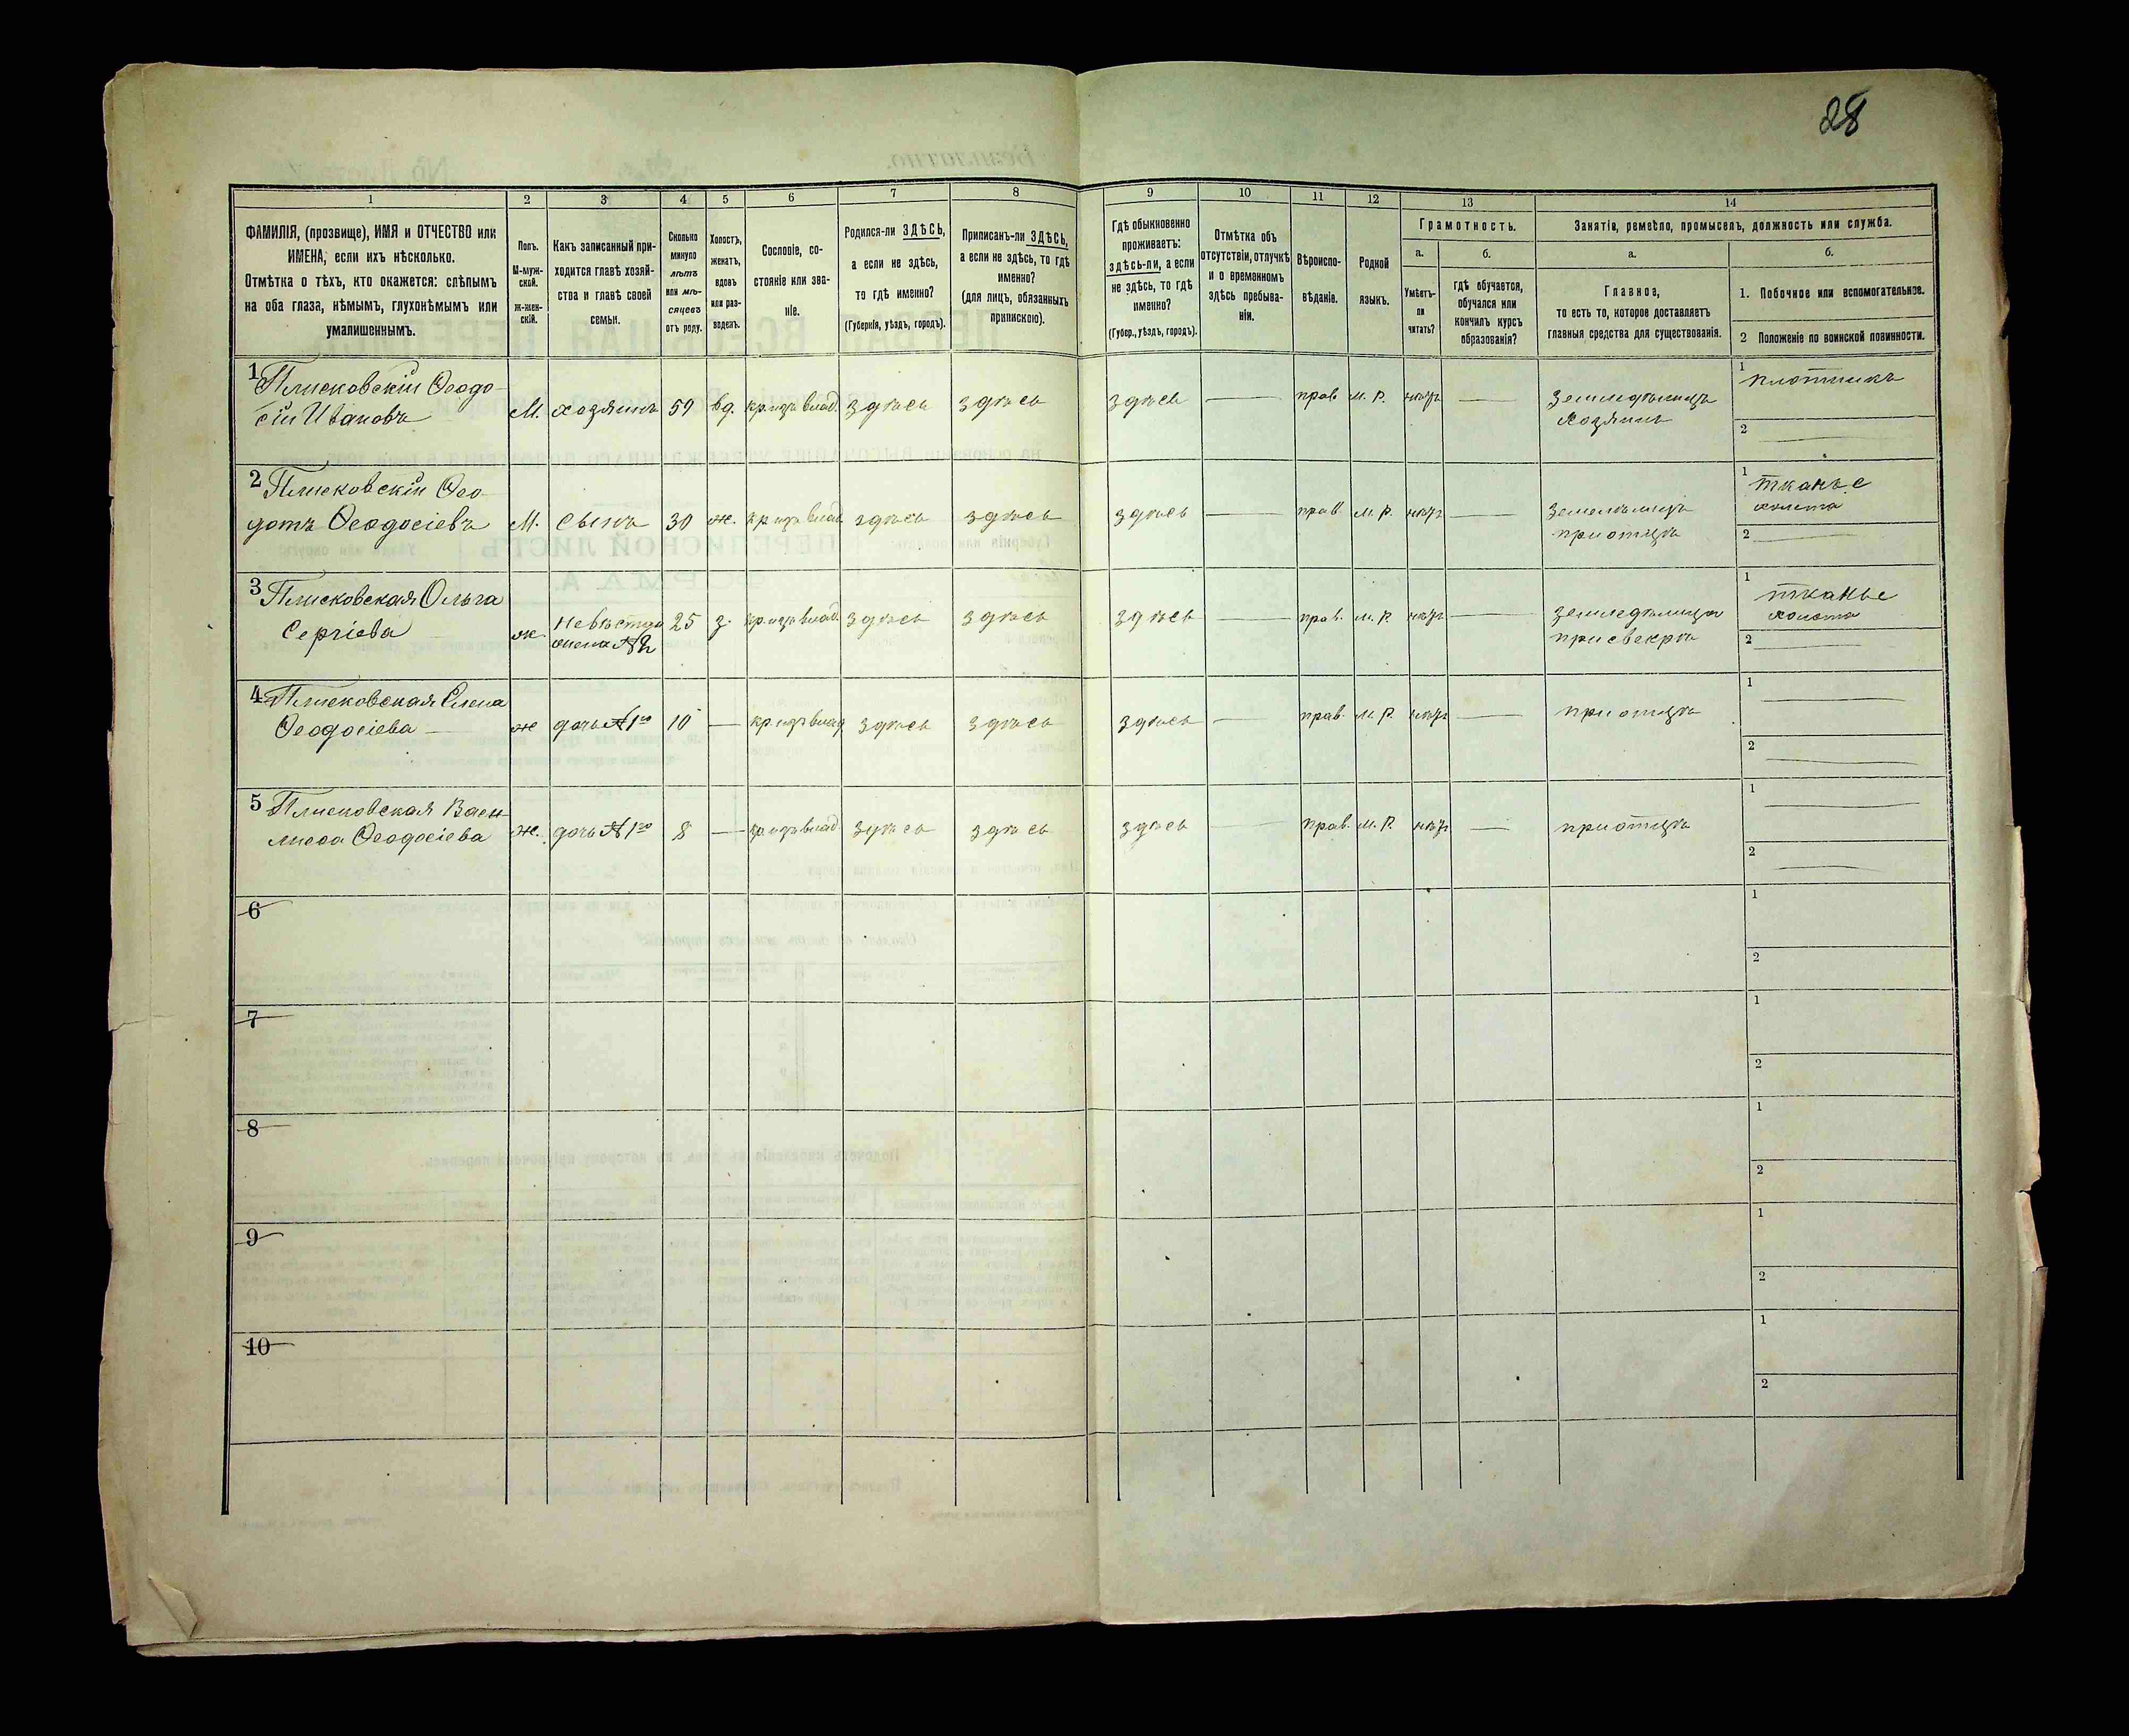 28
1
2
3
4
5
6
7
8
9
10
11
12
13
14
ФАМИЛІЯ, (прозвище), ИМЯ и ОТЧЕСТВО или
ИМЕНА, если ихъ нѣсколько.
Отмѣтка о тѣхъ, кто окажется: слѣпымъ
на оба глаза, нѣмымъ, глухонѣмымъ или
умалишеннымъ.
Полъ.
М-муж-
ской.
ж-жен-
скій.
Какъ записанный при-
ходится главѣ хозяй-
ства и главѣ своей
семьи.
Сколько
минуло
лѣтъ
или мѣ-
сяцевъ
отъ роду.
Холостъ,
женатъ,
вдовъ
или раз-
веденъ.
Сословіе, со-
стояніе или зва-
ніе.
Родился-ли ЗДѢСЬ,
а если не здѣсь,
то гдѣ именно?
(Губернія, уѣздъ, городъ).
Приписанъ-ли ЗДѢСЬ,
а если не здѣсь, то гдѣ
именно?
(для лицъ, обязанныхъ
припискою).
Гдѣ обыкновенно
проживаетъ:
здѣсь-ли, а если
не здѣсь, то гдѣ
именно?
(Губер., уѣздъ, городъ).
Отмѣтка объ
отсутствіи, отлучкѣ
и о временномъ
здѣсь пребыва-
ніи.
Вѣроиспо-
вѣданіе.
Родной
языкъ.
Грамотность.
а.
Умѣетъ-
ли
читать?
б.
гдѣ обучается,
обучался или
кончилъ курсъ
образованія?
Занятіе, ремесло, промыселъ, должность или служба.
а.
Главное,
то есть то, которое доставляетъ
главныя средства для существованія.
б.
1. Побочное или вспомогательное.
2 Положеніе по воинской повинности.
1 Плисковскій Ѳеодо-
сій Ивановъ
М. хозяинъ 59 вд. кр. изъ влад. здѣсь здѣсь здѣсь — прав. м. р. нѣтъ — земледѣлецъ
хозяинъ
1 плотникъ
2 —
2 Плисковскій Ѳео-
дотъ Ѳеодосіевъ
М. сынъ 30 ж. кр. изъ влад. здѣсь здѣсь здѣсь — прав. м. р. нѣтъ —
при отцѣ
1 тканье
холста
2 —
3 Плисковская Ольга
Сергіева
ж. Невѣстка
жена №2
25 з. кр. изъ влад. здѣсь здѣсь здѣсь — прав. м. р. нѣтъ — земледѣлица
при свекрѣ
1 тканье
холста
2 —
4 Плисковская Елена
Ѳеодосіева —
ж дочь №1го 10 — кр. изъ влад. здѣсь здѣсь здѣсь — прав. м. р. нѣтъ — при отцѣ
1 —
2 —
5 Плисковская Васи-
лисса Ѳеодосіева
ж. дочь №1го 8 — кр. изъ влад. здѣсь здѣсь здѣсь — прав. м. р. нѣтъ — при отцѣ
1 —
2 —
6
1
2
7
1
2
8
1
2
9
1
2
10
1
2